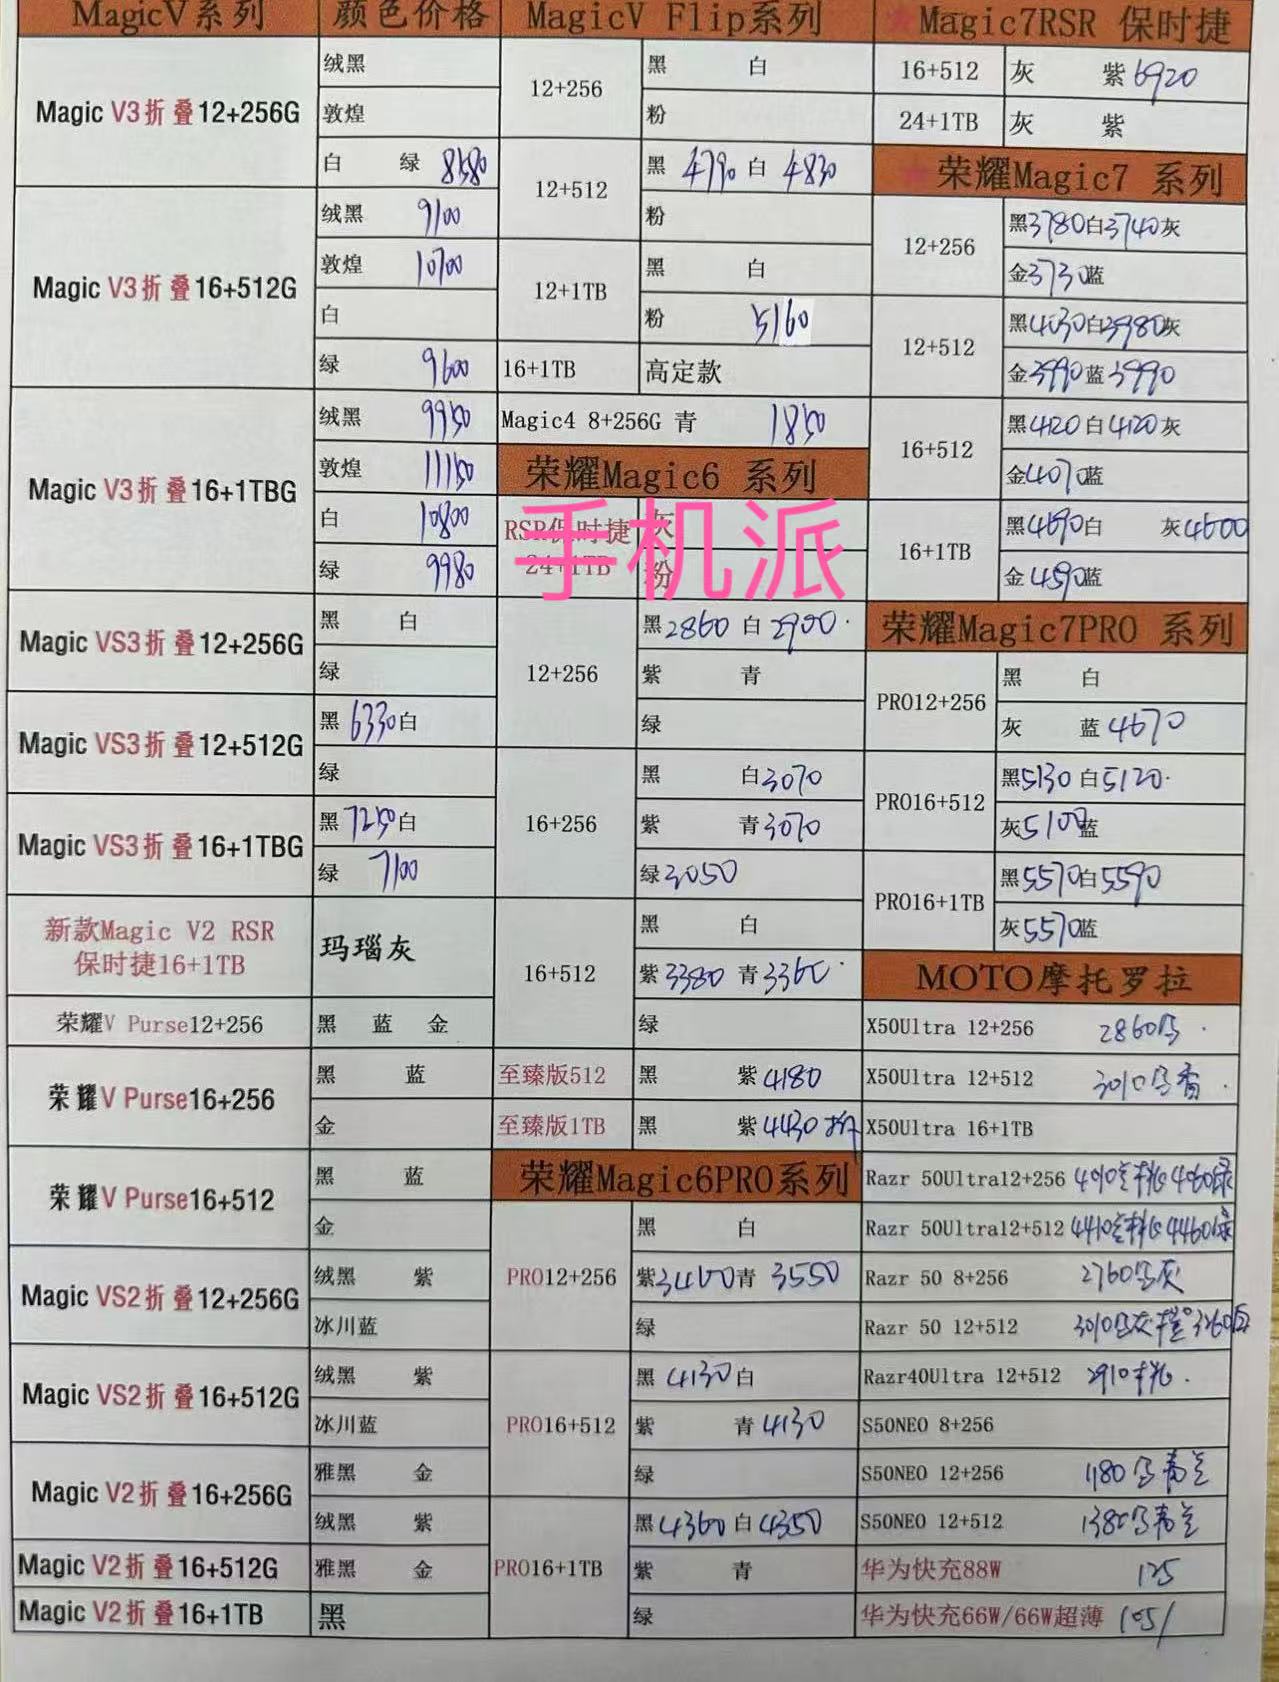 MagicV系列 颜色价格
Magic V3折叠12+256G
绒黑
敦煌
白 绿 8580
Magic V3折叠16+512G
绒黑 9100
敦煌 10700
白
绿 9600
Magic V3折叠16+1TBG
绒黑 9950
敦煌 11150
白 10800
绿 9980
Magic VS3折叠12+256G
黑 白
绿
Magic VS3折叠12+512G
黑 6330 白
绿
Magic VS3折叠16+1TBG
黑 7250 白
绿 7100
新款Magic V2 RSR
保时捷16+1TB
玛瑙灰
荣耀V Purse12+256 黑 蓝 金
荣耀V Purse16+256
黑 蓝
金
荣耀V Purse16+512
黑 蓝
金
Magic VS2折叠12+256G
绒黑 紫
冰川蓝
Magic VS2折叠16+512G
绒黑 紫
冰川蓝
Magic V2折叠16+256G
雅黑 金
绒黑 紫
Magic V2折叠16+512G 雅黑 金
Magic V2折叠16+1TB 黑
MagicV Flip系列
12+256
黑 白
粉
12+512
黑 4790 白 4830
粉
12+1TB
黑 白
粉 5160
16+1TB 高定款
Magic4 8+256G 青 1850
荣耀Magic6 系列
手机派
RSR保时捷
24+1TB
灰
粉
12+256
黑2860 白 2900
紫 青
绿
16+256
黑 白3070
紫 青3070
绿3050
16+512
黑 白
紫3380 青3360
绿
至臻版512 黑 紫4180
至臻版1TB 黑 紫4430
荣耀Magic6PRO系列
PRO12+256
黑 白
紫3460青 3550
绿
PRO16+512
黑 4130白
紫 青4130
绿
PRO16+1TB
黑4360白4350
紫 青
绿
Magic7RSR 保时捷
16+512 灰 紫6920
24+1TB 灰 紫
荣耀Magic7 系列
12+256
黑3780白3740灰
金3730蓝
12+512
黑4030白3980灰
金3990蓝3990
16+512
黑4120白4120灰
金4070蓝
16+1TB
黑4690白 灰4600
金4590蓝
荣耀Magic7PRO 系列
PRO12+256
黑 白
灰 蓝4670
PRO16+512
黑5130白5120
灰5100蓝
PRO16+1TB
黑5570白5590
灰5570蓝
MOTO摩托罗拉
X50Ultra 12+256 2860
X50Ultra 12+512 3010
X50Ultra 16+1TB
Razr 50Ultra12+256 4010 4060绿
Razr 50Ultra12+512 4410 4460绿
Razr 50 8+256 2760 灰
Razr 50 12+512 3010 灰 3260
Razr40Ultra 12+512 2910桃
S50NEO 8+256
S50NEO 12+256 1180
S50NEO 12+512 1380
华为快充88W 125
华为快充66W/66W超薄 105/